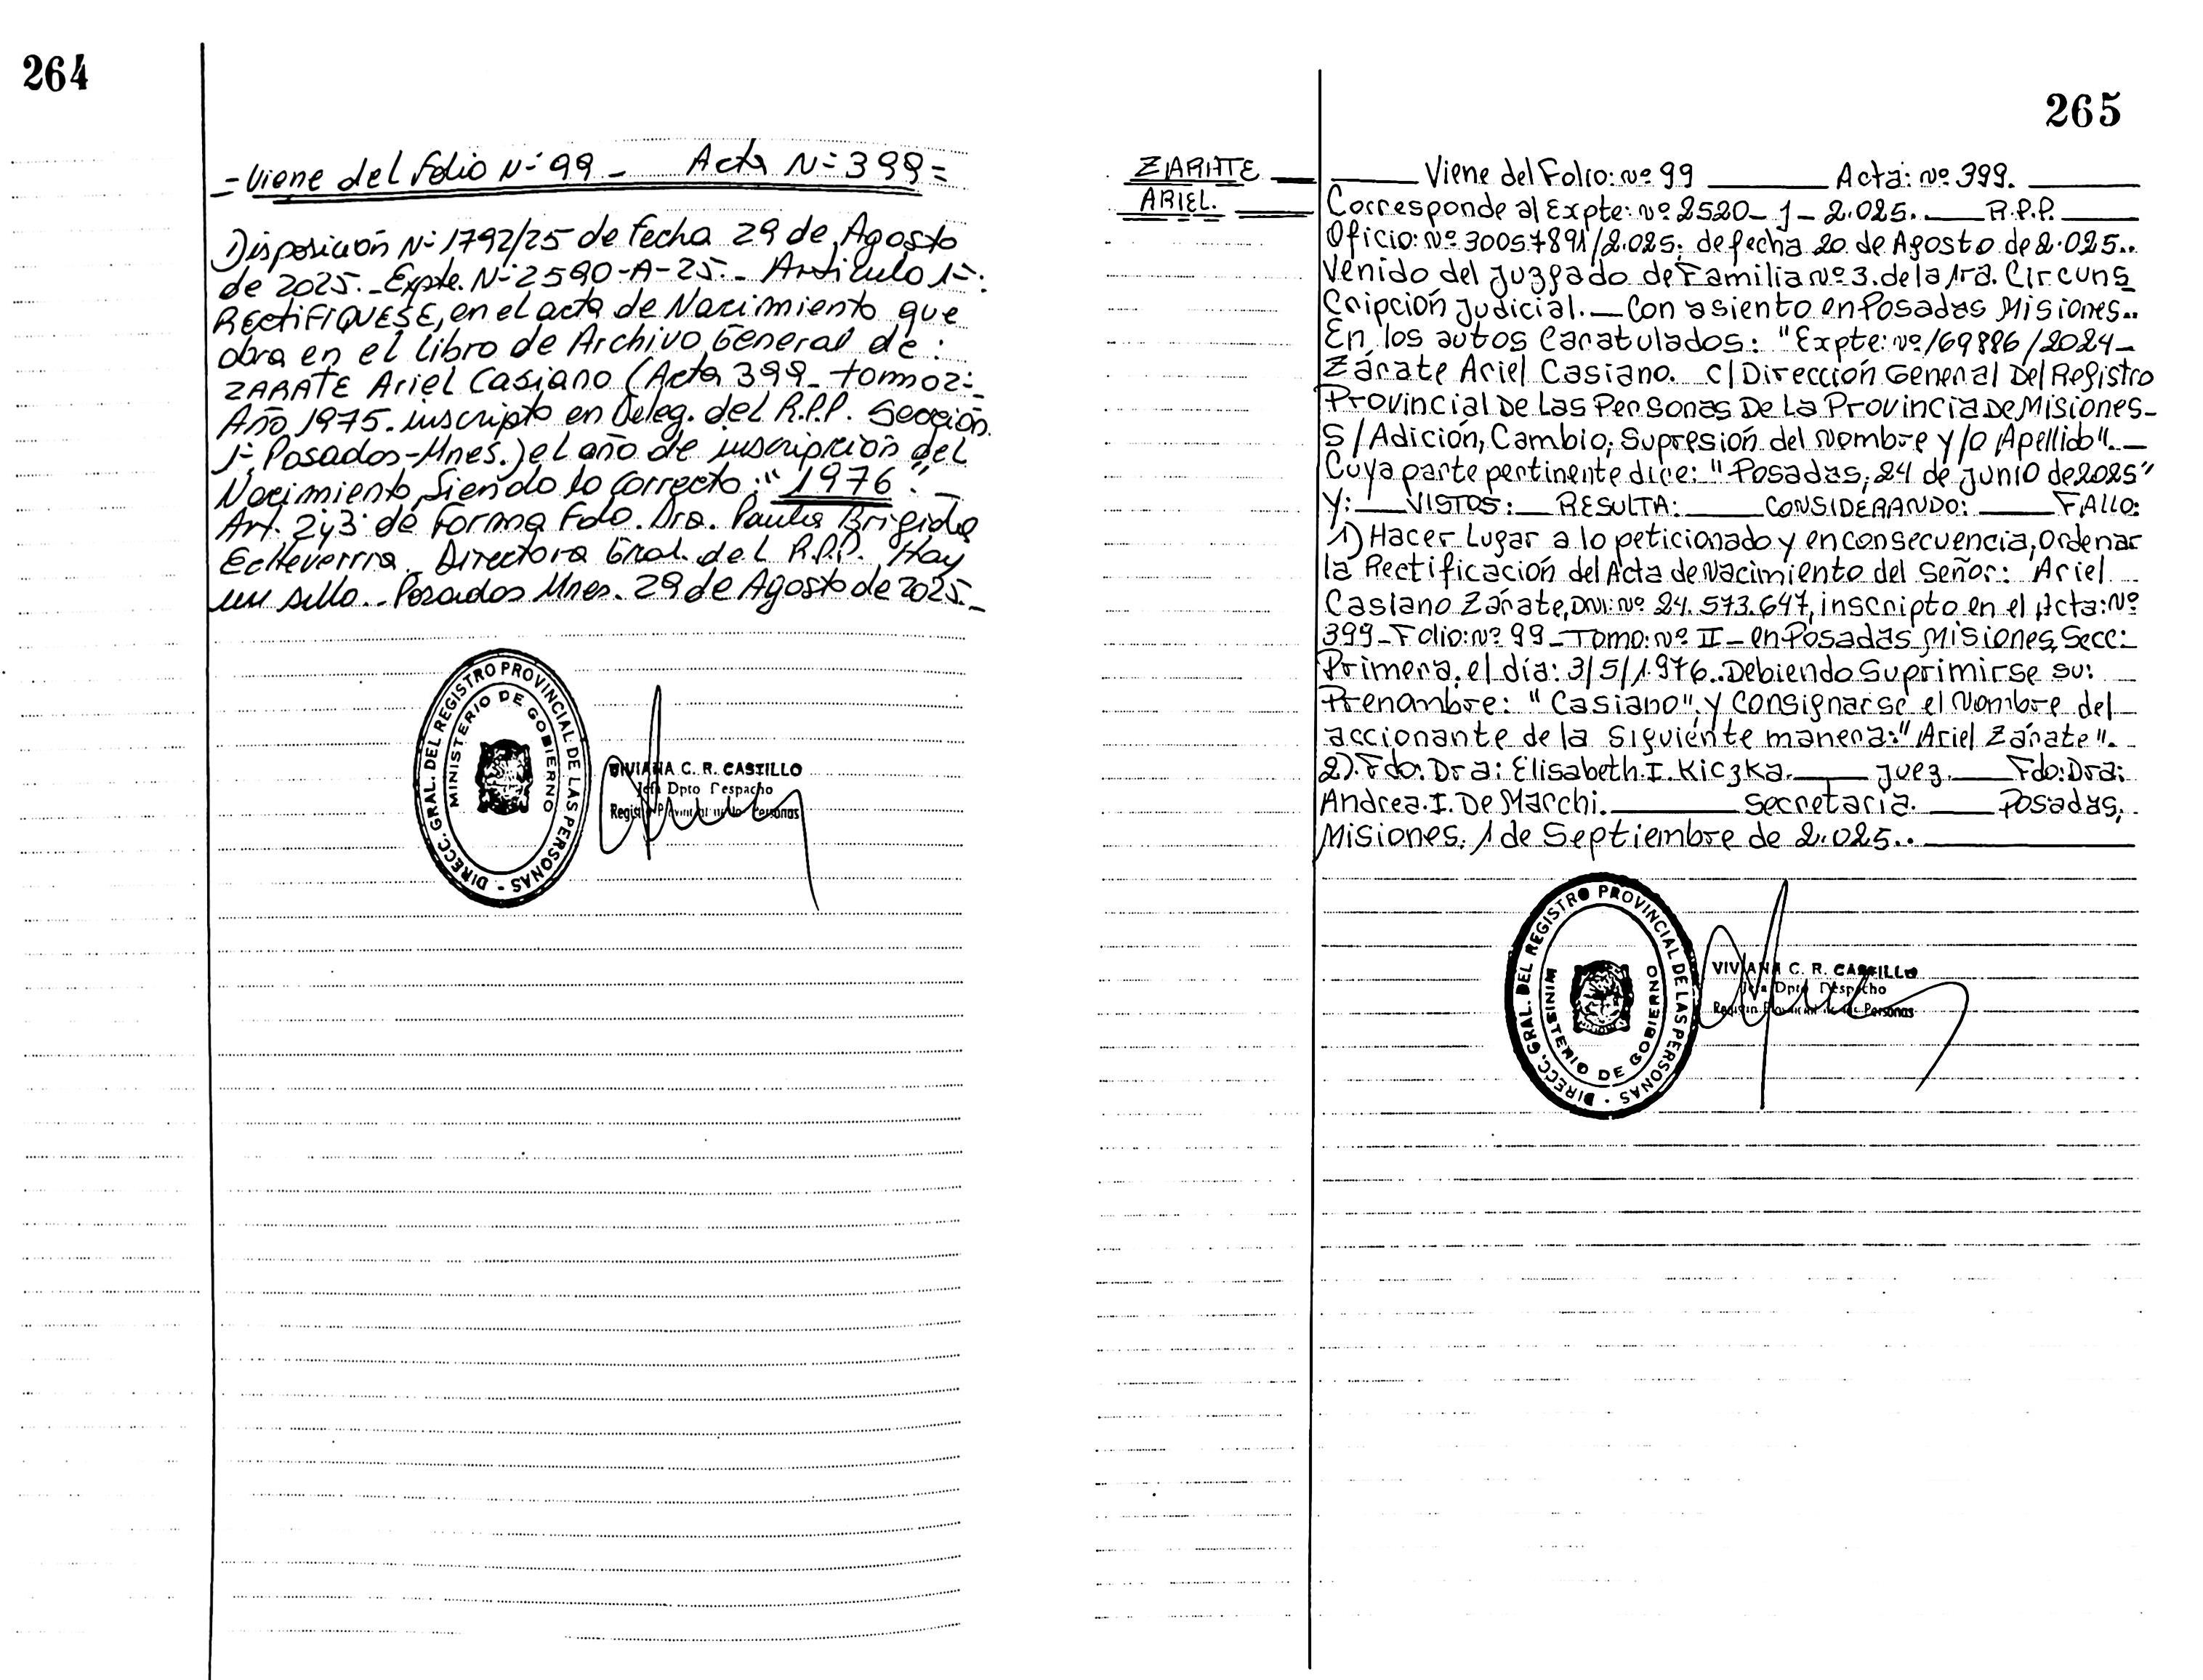 264
- Viene del folio Nº 99 - Acta Nº 399 =
Disposición Nº 1792/25 de fecha 29 de Agosto
de 2025. - Expte. Nº 2590-A-25. - Artículo 1º:
RECTIFIQUESE, en el acta de Nacimiento que
obra en el libro de Archivo General de:
ZARATE Ariel Casiano (Acta 399 - tomo 02:
Año 1975. inscripto en Deleg. del R.P.P. Sección
1º Posadas-Mnes.) el año de inscripción del
Nacimiento, Siendo lo correcto: "1976". -
Art. 2y3 de Forma Fdo. Dra. Paula Brigida
Echeverria. Directora Gral. del R.P.P. Hay
un sello. - Posadas Mnes. 29 de Agosto de 2025. -
DIRECC. GRAL. DEL REGISTRO PROVINCIAL DE LAS PERSONAS -
MINISTERIO DE GOBIERNO
VIVIANA C. R. CASTILLO
Jefa Dpto Despacho
Registro Provincial de las Personas
265
ZARATE
ARIEL.
Viene del Folio: nº 99 Acta: nº 399.
Corresponde al Expte: nº 2520 - J - 2.025. R.P.P.
Oficio: nº 30057891/2.025; de fecha 20 de Agosto de 2.025..
Venido del Juzgado de Familia nº 3. de la 1ra. Circuns
cripción Judicial. — Con asiento en Posadas Misiones..
En los autos Caratulados: "Expte: nº 169886/2024 -
Zárate Ariel Casiano. C/ Dirección General Del Registro
Provincial De Las Personas De La Provincia De Misiones -
S/Adición, Cambio, Supresión del Nombre y/o Apellido". —
Cuya parte pertinente dice: "Posadas, 24 de Junio de 2025"
Y: VISTOS: RESULTA: CONSIDERANDO: FALLO:
1) Hacer Lugar a lo peticionado y en consecuencia, ordenar
la Rectificación del Acta de Nacimiento del Señor: Ariel
Casiano Zárate, DNI: nº 24.573.647, inscripto en el Acta: Nº
399 - Folio: nº 99 - Tomo: nº II - en Posadas, Misiones, Secc:
Primera, el día: 3/5/1.976.. Debiendo Suprimirse su:
Prenombre: "Casiano", y Consignarse el Nombre del
accionante de la siguiente manera: "Ariel Zárate".
2). Fdo: Dra: Elisabeth. I. Kiczka. Juez. Fdo: Dra:
Andrea. I. De Marchi. Secretaria. Posadas,
Misiones, 1 de Septiembre de 2.025..
DIRECC. GRAL. DEL REGISTRO PROVINCIAL DE LAS PERSONAS -
MINISTERIO DE GOBIERNO
VIVIANA C. R. CASTILLO
Jefa Dpto Despacho
Registro Provincial de las Personas